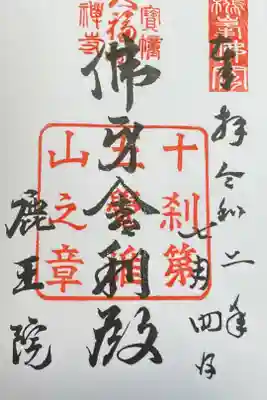 奉拝 令和二年
七月四日
寶幢
禪寺
佛牙舎利殿
十刹第
山之章
鹿王院